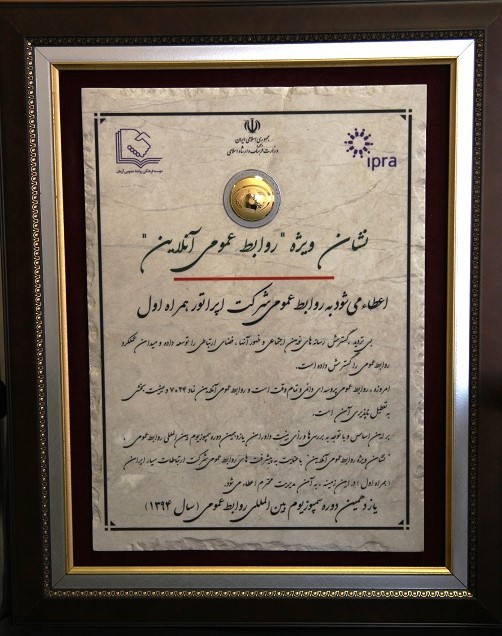 جمهوری اسلامی ایران
وزارت فرهنگ و ارشاد اسلامی
موسسه فرهنگی روابط عمومی آرمان
ipra
نشان ویژه "روابط عمومی آنلاین"
اعطاء می شود به روابط عمومی شرکت اپراتور همراه اول
بی تردید، گسترش رسانه های نوین اجتماعی و ظهور آنها، فضای ارتباطی را توسعه داده و میدان عملکرد
روابط عمومی را گسترش داده است.
امروزه، روابط عمومی پروسه ای دائمی و تمام وقت است و روابط عمومی آنلاین نماد ۲۴*۷ و عینیت بخشی
به تعطیل ناپذیری آن است.
بر این اساس و با توجه به بررسی ها و رأی هیئت داوران یازدهمین دوره سمپوزیوم بین المللی روابط عمومی،
"نشان ویژه روابط عمومی آنلاین" با عنایت به پیشرفت های روابط عمومی شرکت ارتباطات سیار ایران
(همراه اول) در این زمینه، به آن مدیریت محترم اعطاء می شود.
یازدهمین دوره سمپوزیوم بین المللی روابط عمومی (سال ۱۳۹۴)